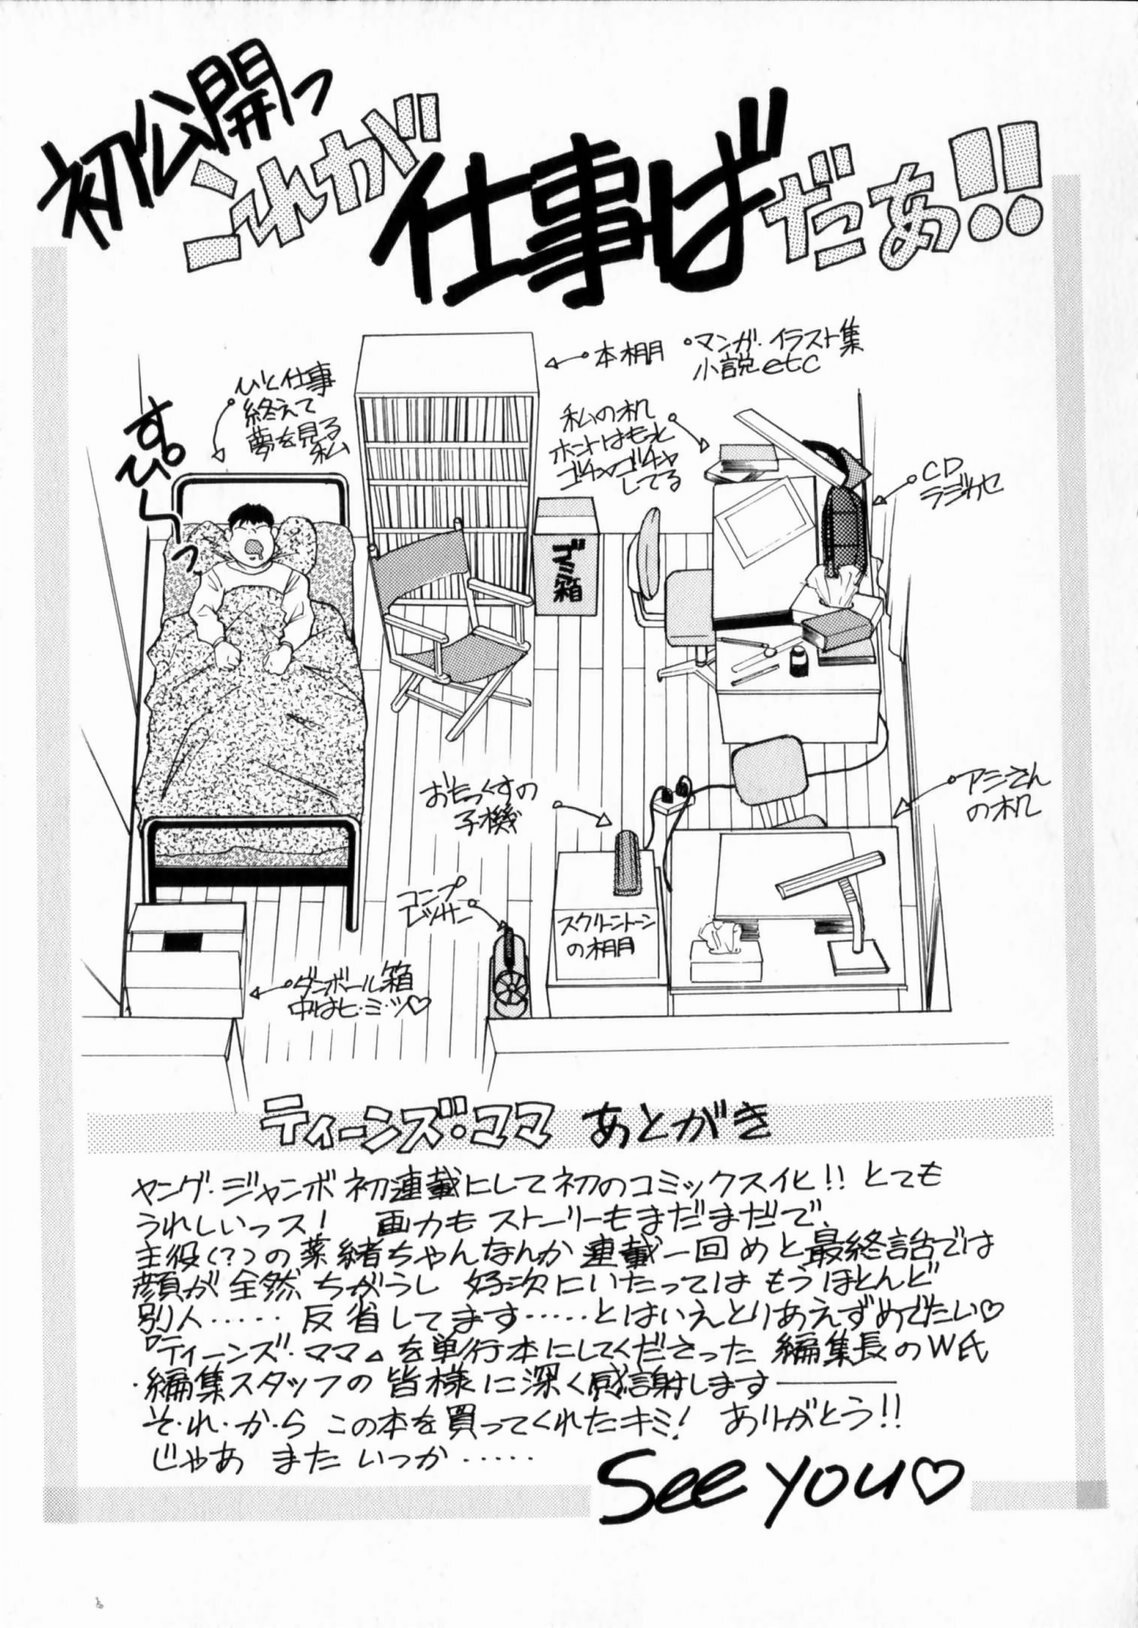 初公開っ
これが
仕事ば
だあ!!
ひと仕事
終えて
夢を見る
私
すぴ〜っ
本棚
・マンガ・イラスト集
小説etc
私の机
ホントはもっと
ゴチャゴチャ
してる
CD
ラジカセ
ゴミ箱
おもっくすの
子機
アシさん
の机
コンプ
レッサー
スクリーントーン
の棚
ダンボール箱
中はヒ・ミ・ツ♡
ティーンズ・ママ あとがき
ヤング・ジャンボ初連載にして初のコミックス化!! とても
うれしいっス! 画力もストーリーもまだまだで、
主役(?)の薬緒ちゃんなんか連載一回めと最終話では
顔が全然ちがうし 好次にいたってはもうほとんど
別人‥‥‥ 反省してます‥‥‥とはいえとりあえずめでたい♡
『ティーンズ・ママ』を単行本にしてくださった編集長のW氏
・編集スタッフの皆様に深く感謝します――
そ・れ・か・ら この本を買ってくれたキミ! ありがとう!!
じゃあ またいつか‥‥‥
See you♡